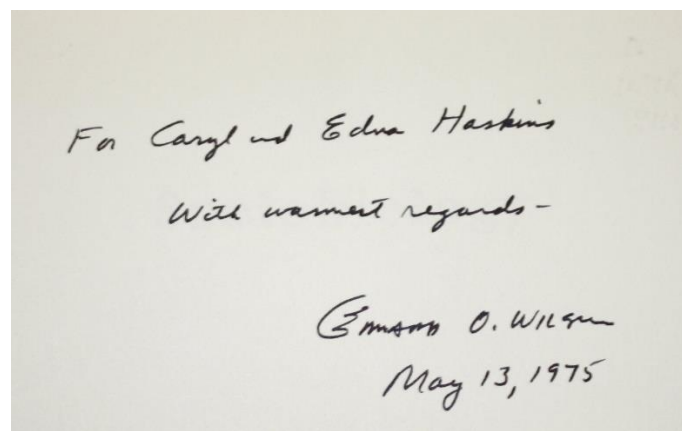 For Caryl and Edna Haskins
With warmest regards-
Edward O. Wilson
May 13, 1975